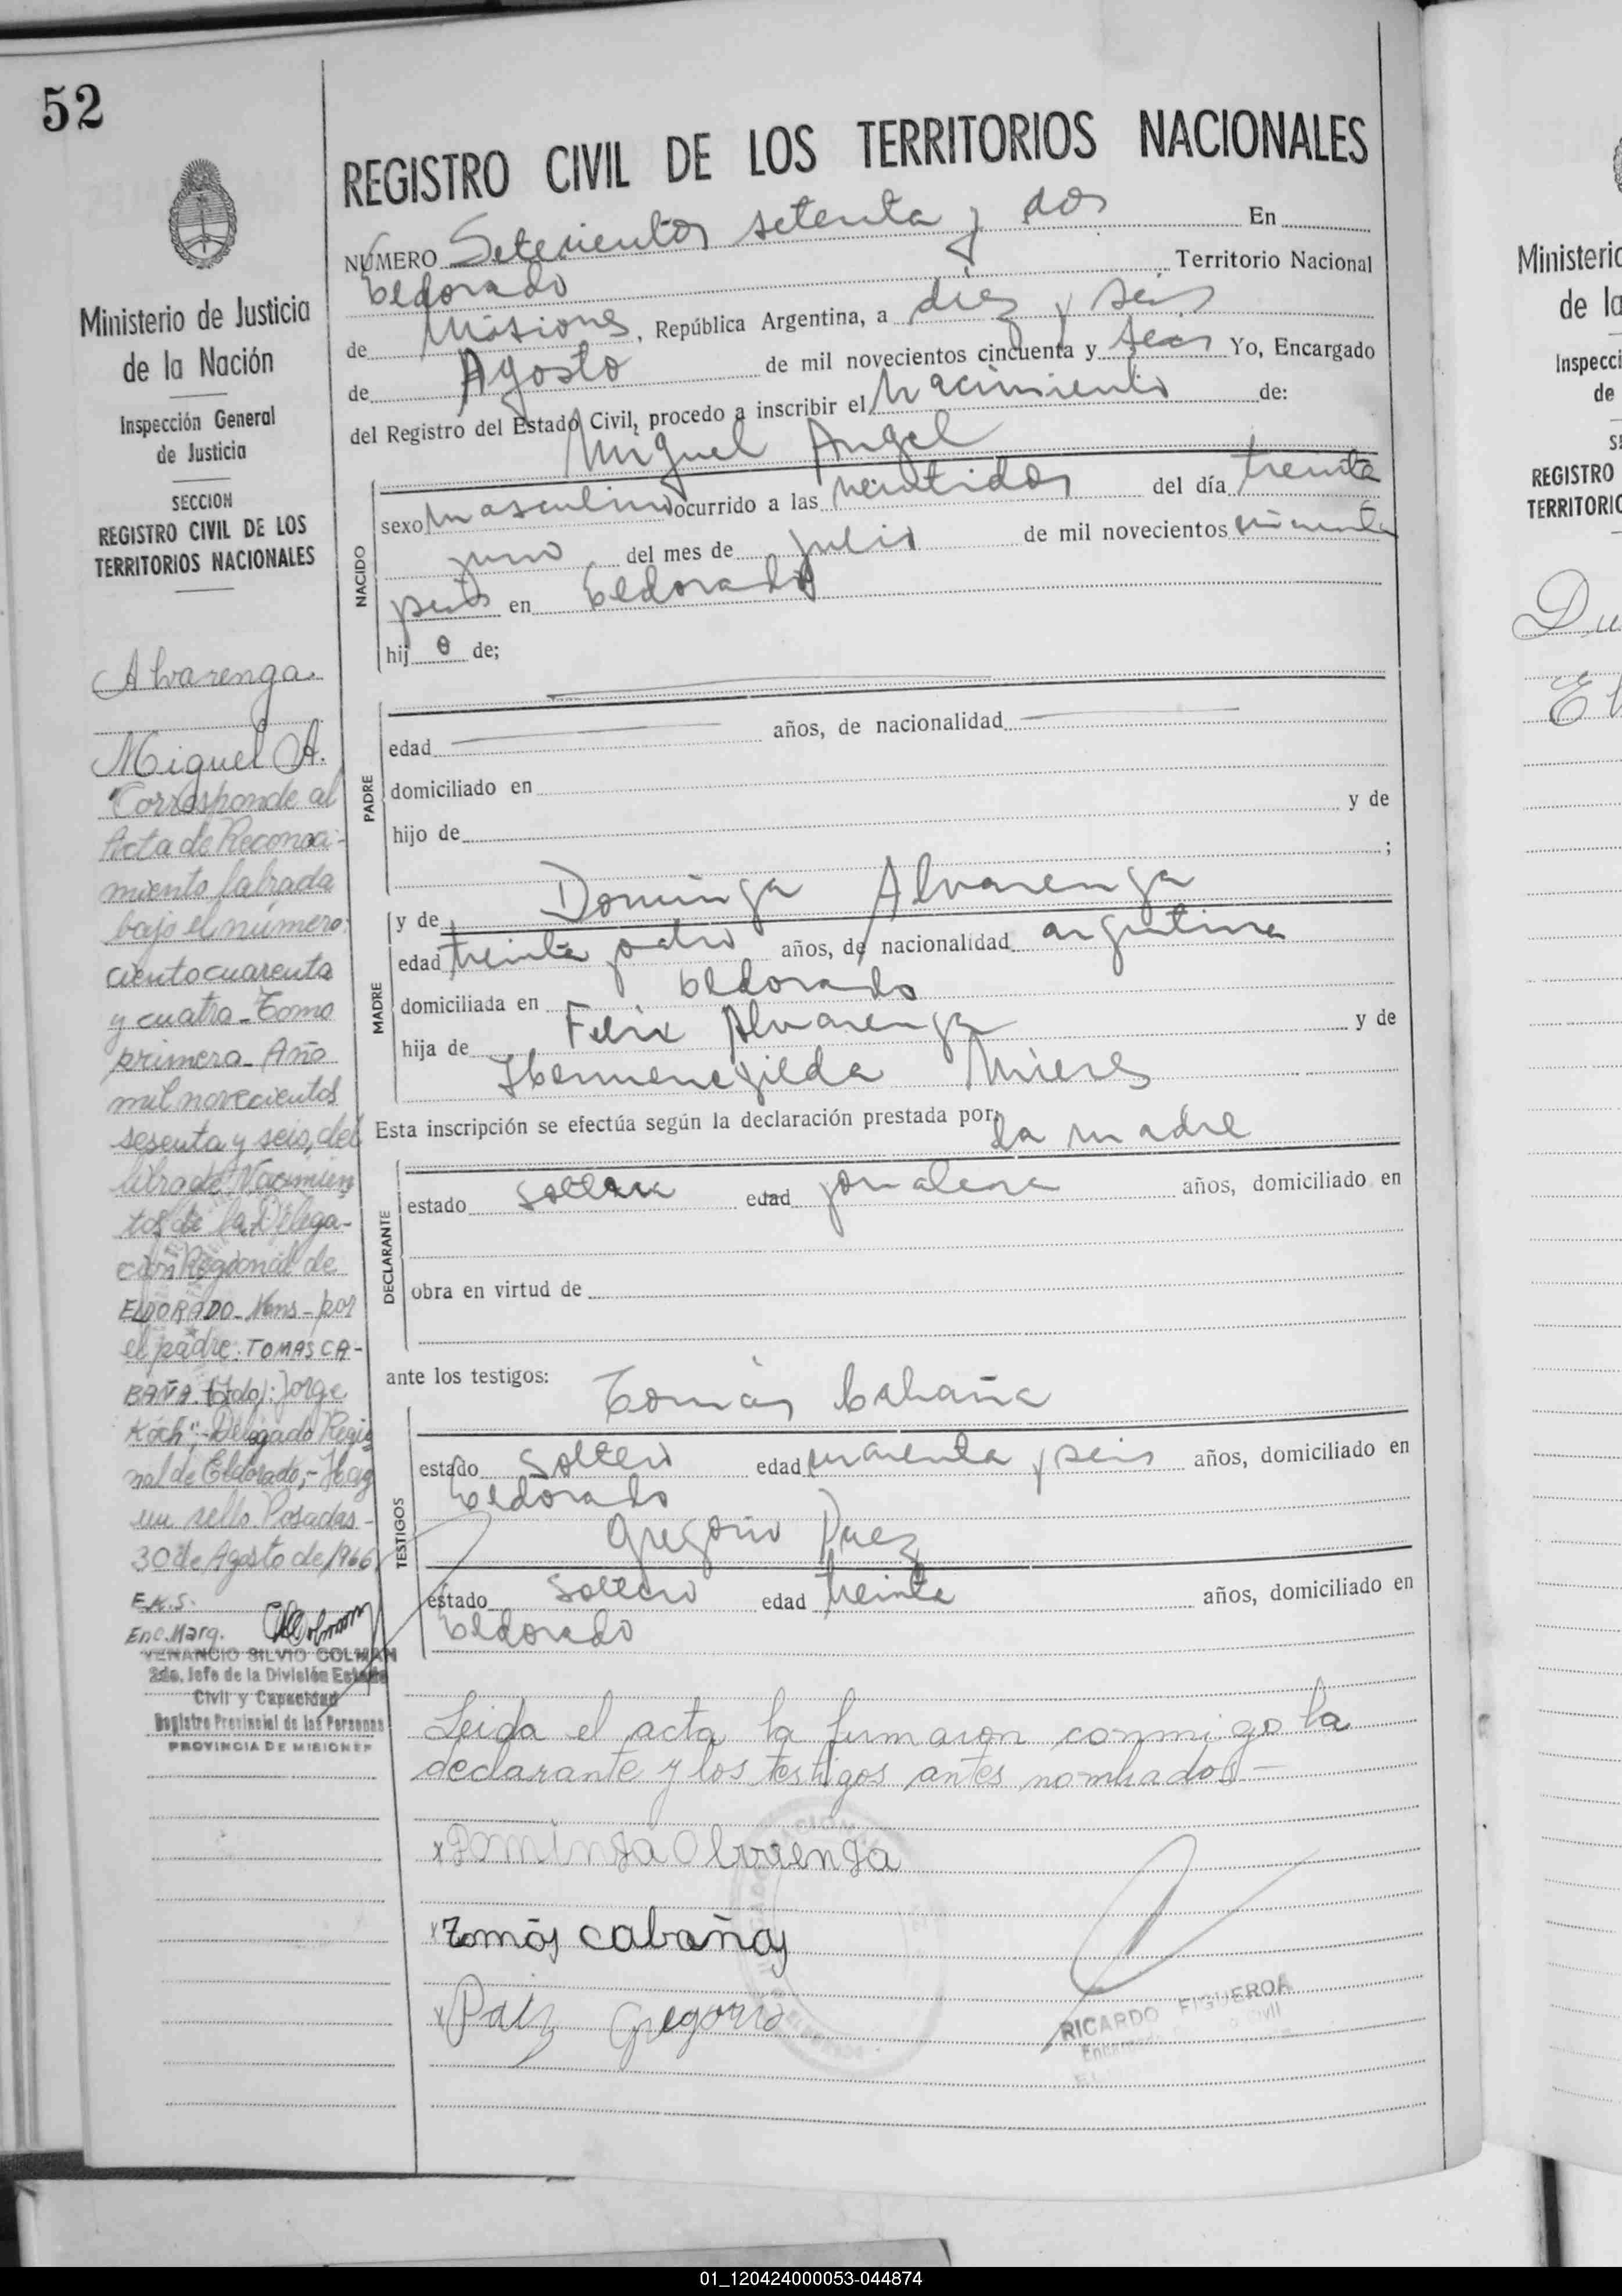 52
Ministerio de Justicia
de la Nación
Inspección General
de Justicia
SECCION
REGISTRO CIVIL DE LOS
TERRITORIOS NACIONALES
Alvarenga.
Miguel A.
"Corresponde al
Acta de Reconoci-
miento labrada
bajo el número:
ciento cuarenta
y cuatro-Tomo
primero-Año
mil novecientos
sesenta y seis, del
libro de Nacimien
tos de la Delega-
ción Regional de
ELDORADO-Mnes-por
el padre: TOMAS CA-
BAÑA. fdo/: Jorge
Koch";-Delegado Regio
nal de Eldorado;-Hay
un sello. Posadas-
30 de Agosto de 1966
E.K.S.
Enc. Marg.
VENANCIO SILVIO COLMAN
2do. Jefe de la División Estado
Civil y Capacidad
Registro Provincial de las Personas
PROVINCIA DE MISIONES
REGISTRO CIVIL DE LOS TERRITORIOS NACIONALES
NÚMERO Setecientos setenta y dos En
Eldorado Territorio Nacional
de Misiones, República Argentina, a diez y seis
de Agosto de mil novecientos cincuenta y seis Yo, Encargado
del Registro del Estado Civil, procedo a inscribir el nacimiento de:
Miguel Angel
NACIDO
sexo masculino ocurrido a las veintidos del día treinta
y uno del mes de Julio de mil novecientos cincuenta
y seis en Eldorado
hij o de;
PADRE
edad años, de nacionalidad
domiciliado en
hijo de y de
;
MADRE
y de Dominga Alvarenga
edad treinta y cuatro años, de nacionalidad argentina
domiciliada en Eldorado
hija de Felix Alvarenga y de
Hermenegilda Mieres
Esta inscripción se efectúa según la declaración prestada por: la madre
DECLARANTE
estado soltera edad jornalera años, domiciliado en
obra en virtud de
ante los testigos:
Tomás Cabaña
TESTIGOS
estado soltero edad cuarenta y seis años, domiciliado en
Eldorado
Gregorio Paez
estado soltero edad treinta años, domiciliado en
Eldorado
Leida el acta la firmaron conmigo la
declarante y los testigos antes nombrados-
x Dominga Alvarenga
x Tomás cabañas
x Paiz Gregorio
RICARDO FIGUEROA
Ministerio
de la
Inspecci
de
REGISTRO
TERRITORIO
01_120424000053-044874